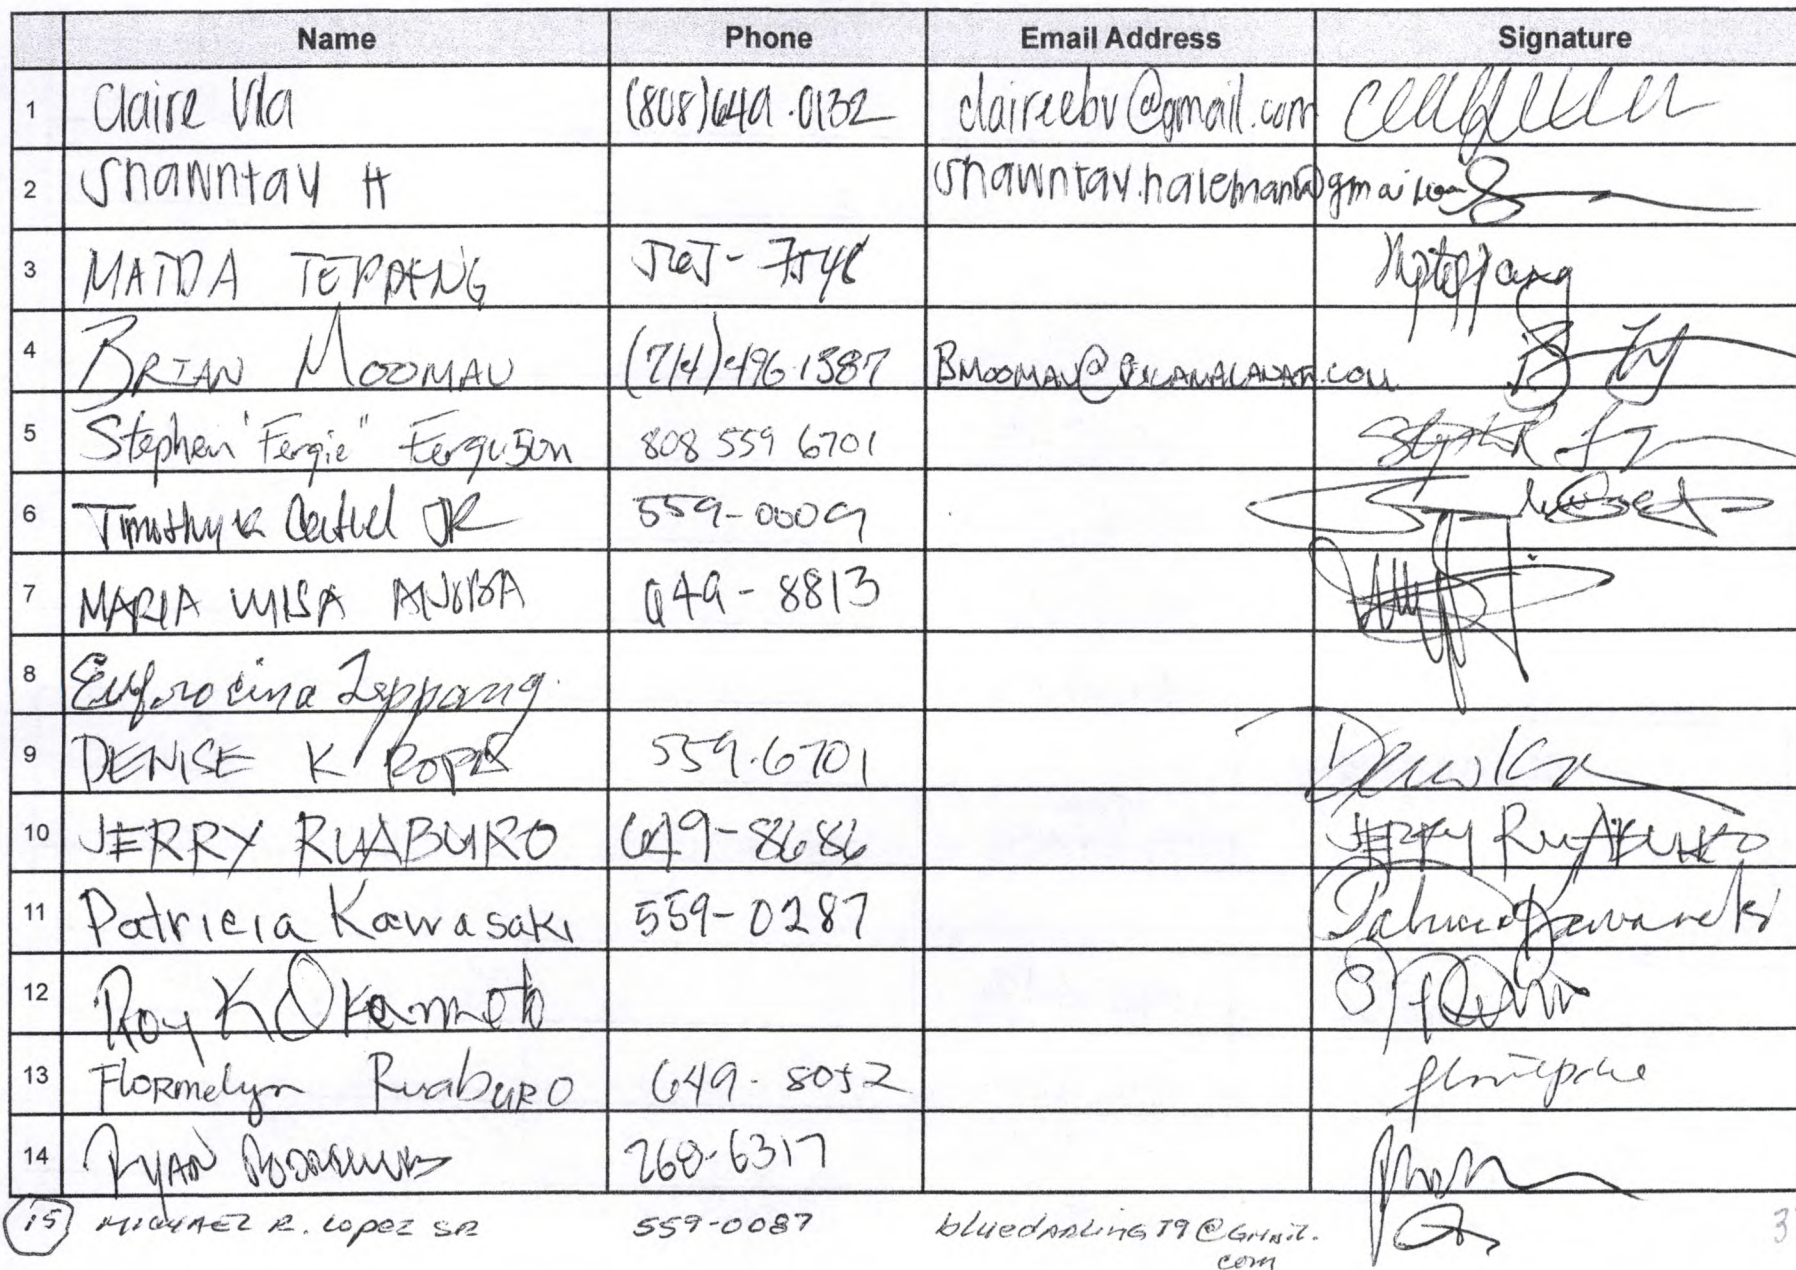 Name Phone Email Address Signature
1 Claire Vla (808)649.0132 claireebv@gmail.com
2 Shawntay H shawntay.haleman@gmail.com
3 MATDA TEPPANG
4 BRIAN MOOMAU (714)496.1387
5 Stephen "Fergie" Ferguson 808 559 6701
6 Timothy K JR 559-0009
7 MARIA LUISA 649-8813
8 Eufrocina Teppang
9 DENISE K 559.6701
10 JERRY RUABURO 649-8686 JERRY RUABURO
11 Patricia Kawasaki 559-0287 Patricia Kawasaki
12 Roy K Okamoto
13 Flormelyn RuabuRO 649-8052
14 RYAN 268-6317
15 MICHAEL R. LOPEZ SR 559-0087 bluedARLiNG79@GMAiL.
com
3